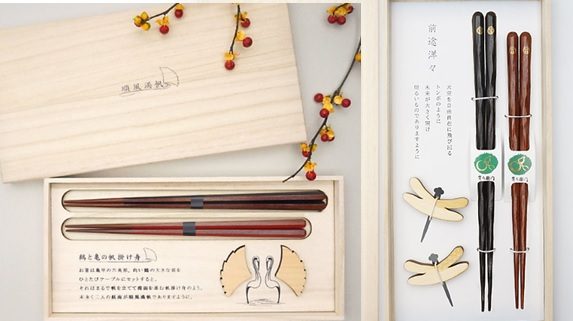 順風満帆
鶴と亀の帆掛け舟
お箸は亀甲の六角形、向い鶴の大きな羽を
ひとたびテーブルにセットすると、
それはまるで帆を立てて
末永く二人の前途が順風満帆でありますように。
前途洋々
大空を自由自在に飛び回る
トンボのように
未来が大きく開け
明るいものでありますように